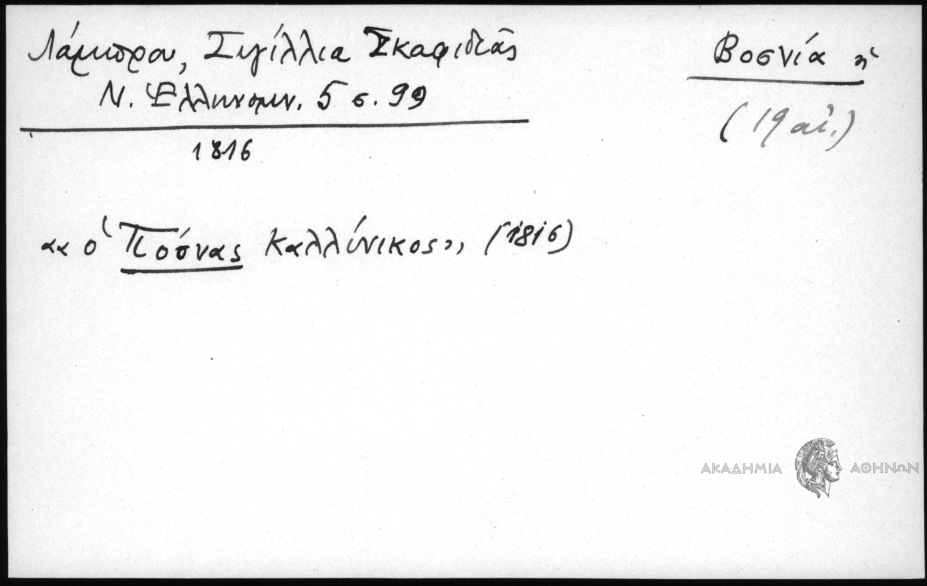 Λάμπρου, Σιγίλλια Σκαφιδιᾶς
Ν. Ἑλληνομν. 5 σ. 99
1816
Βοσνία ἡ
(19 αἰ.)
«ὁ Πόσνας Καλλίνικος», (1816)
ΑΚΑΔΗΜΙΑ ΑΘΗΝΩΝ